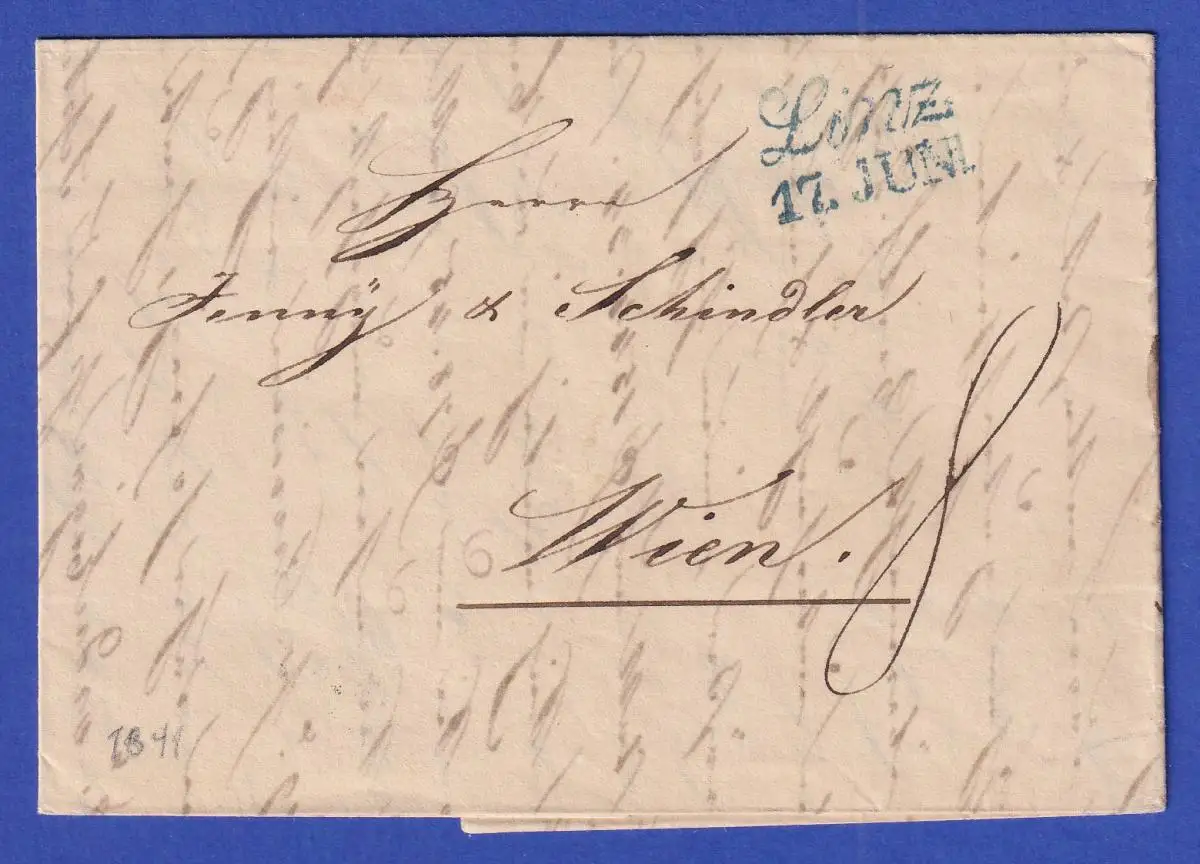 Linz
17. JUNI.
Herrn
Jenny & Schindler
Wien.
8
6
6
1841